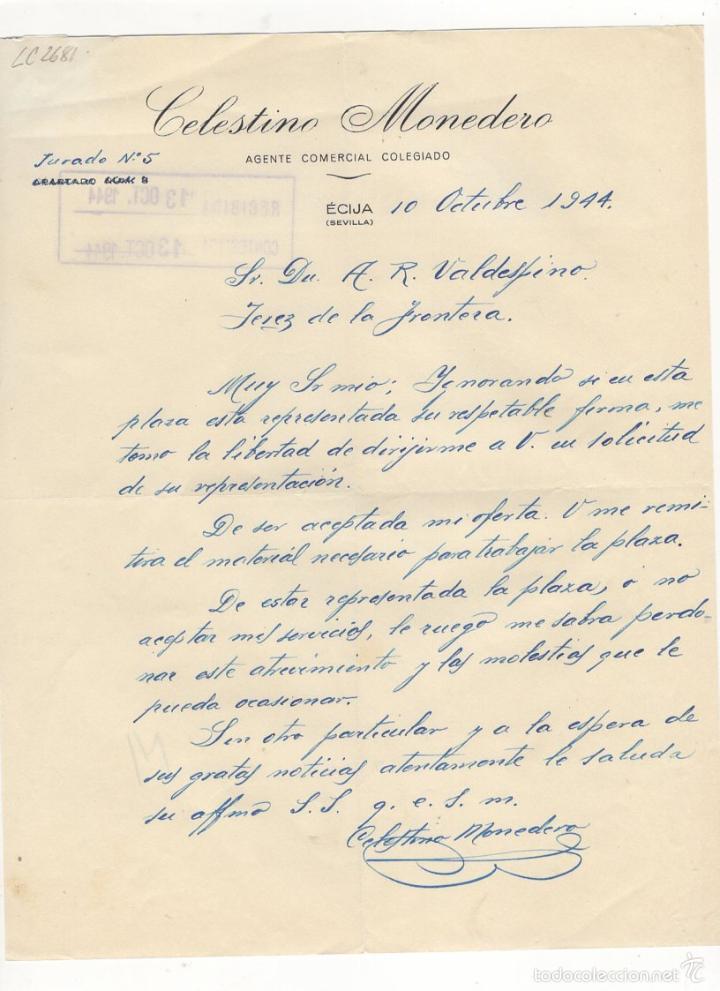 LC 2681
Celestino Monedero
AGENTE COMERCIAL COLEGIADO
Jurado Nº 5
APARTADO NÚM. 8
RECIBIDA 13 OCT. 1944
CONTESTADA 13 OCT. 1944
ÉCIJA 10 Octubre 1944.
(SEVILLA)
Sr. Dn. A. R. Valdespino.
Jerez de la Frontera.
Muy Sr mio; Ignorando si en esta
plaza esta representada su respetable firma, me
tomo la libertad de dirijirme a V. en solicitud
de su representación.
De ser aceptada mi oferta. V me remi-
tira el material necesario para trabajar la plaza.
De estar representada la plaza, o no
aceptar mis servicios, le ruego me sabra perdo-
nar este atrevimiento y las molestias que le
pueda ocasionar.
Sin otro particular y a la espera de
sus gratas noticias atentamente le saluda
su affmo S. S. q. e. s. m.
Celestino Monedero
todocoleccion.net